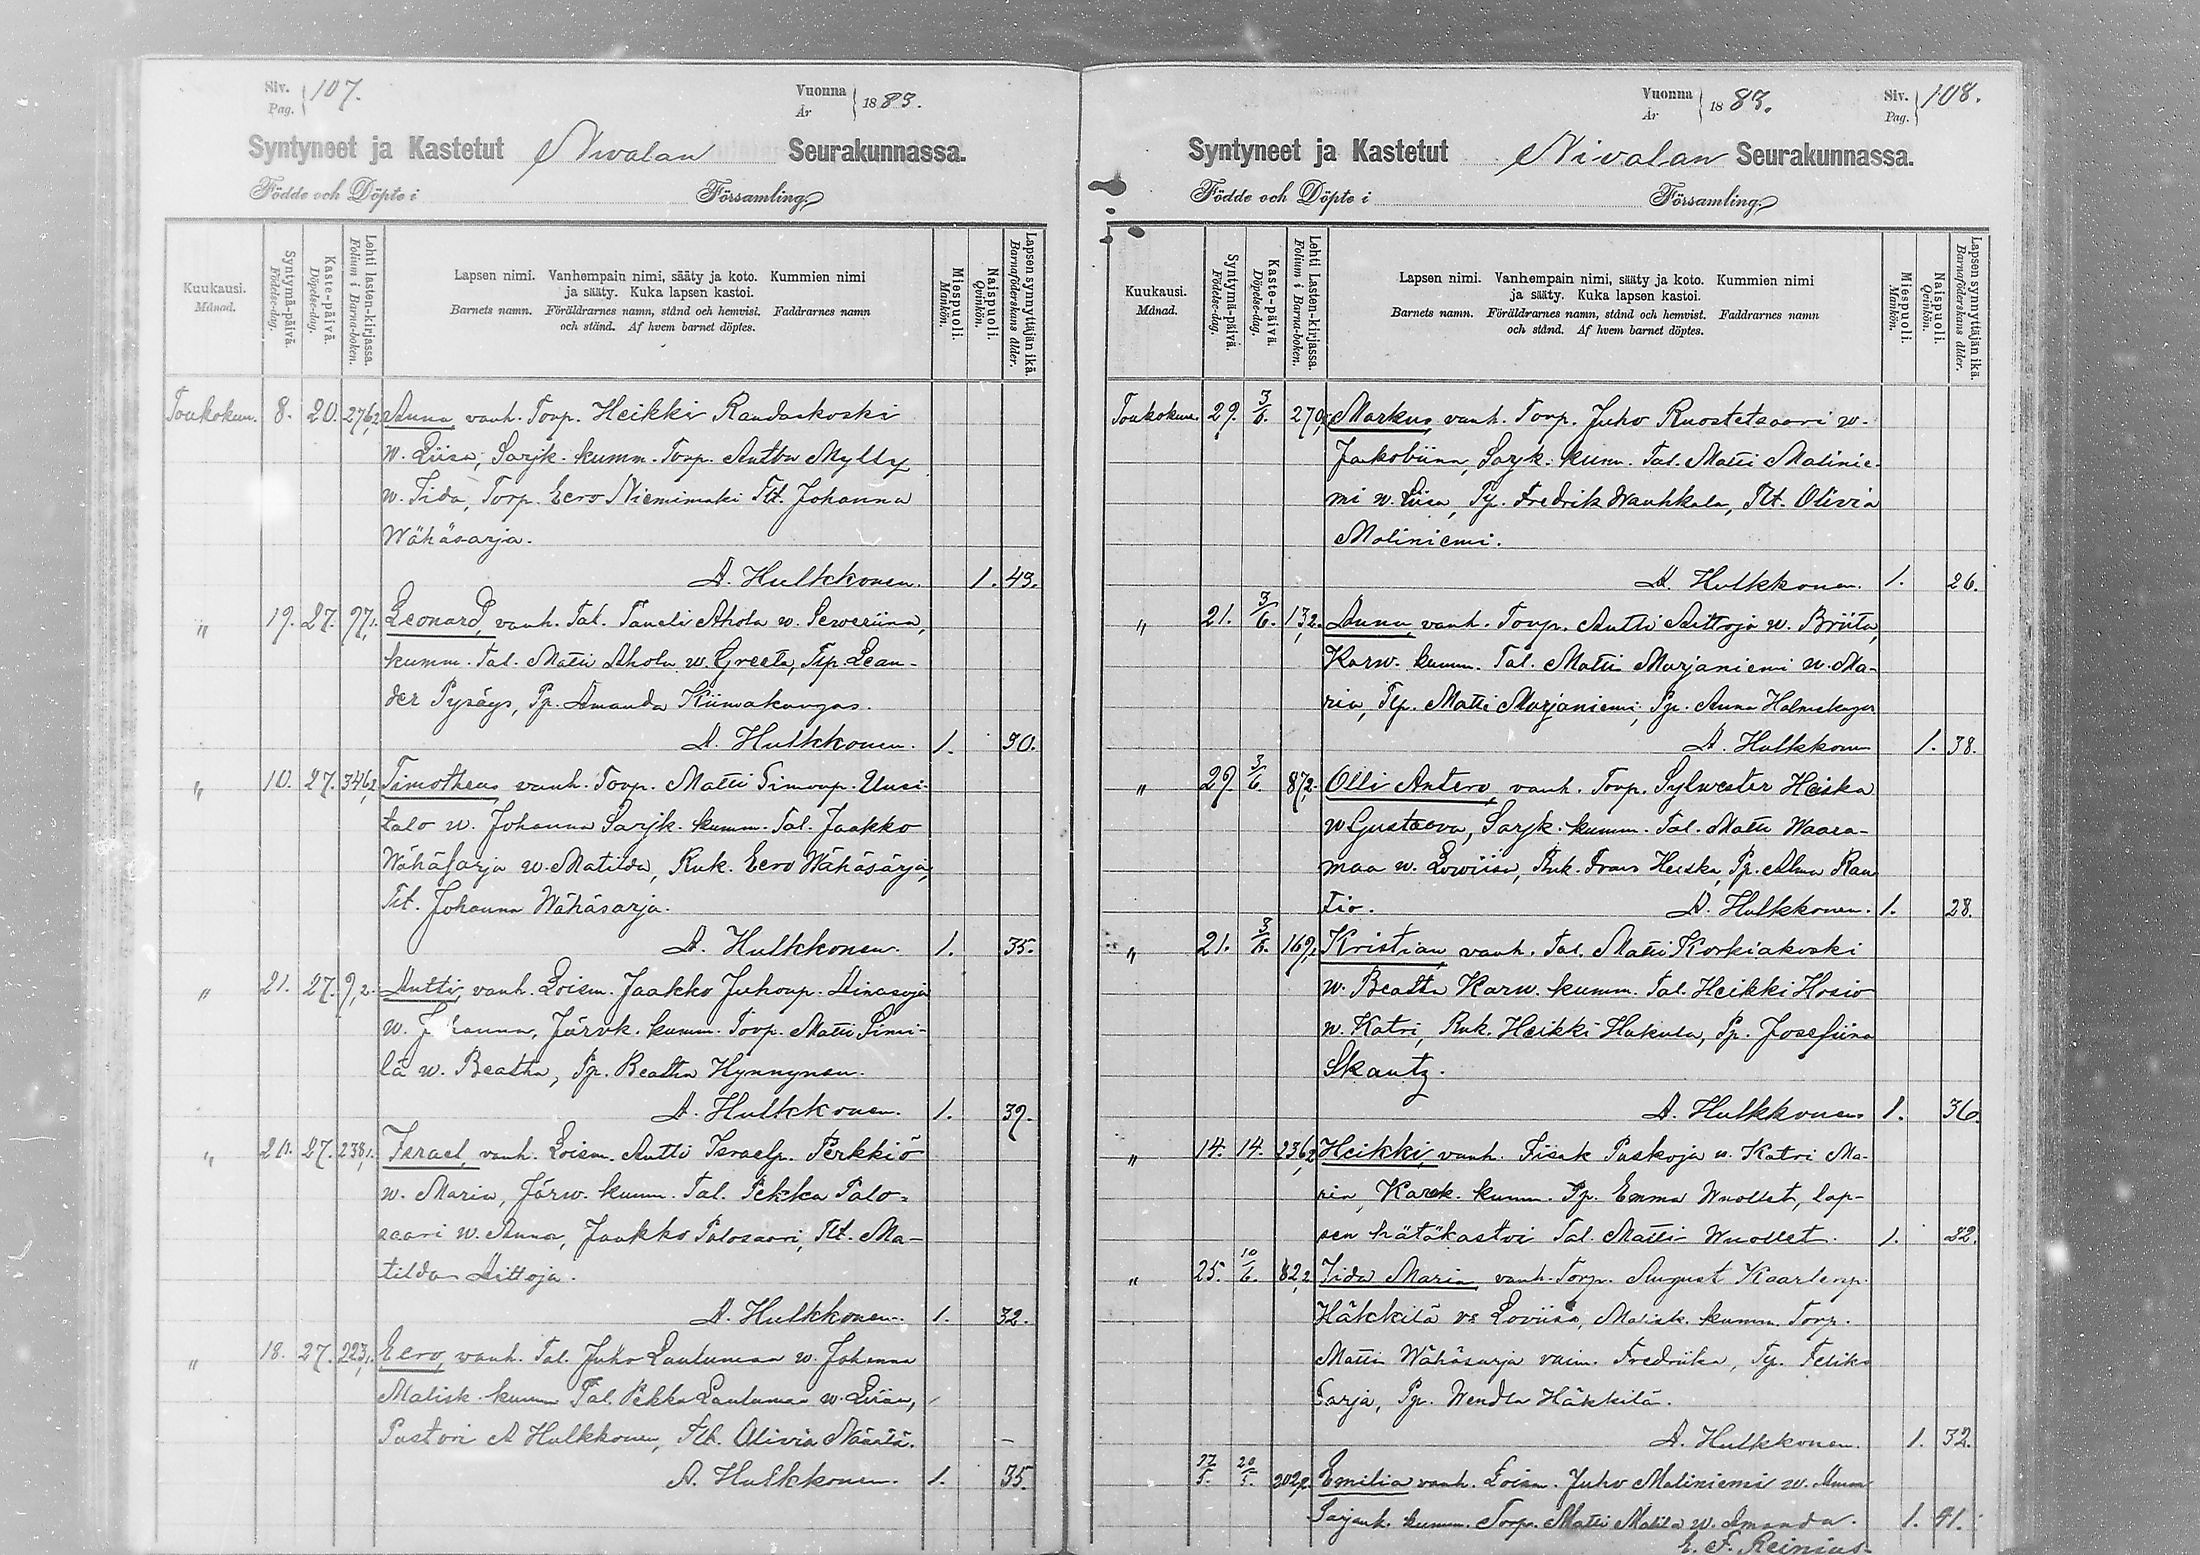 Siv. Pag. 107.
Vuonna År 1883.
Syntyneet ja Kastetut Nivalan Seurakunnassa.
Födde och Döpte i Församling.
Kuukausi. Månad.
Syntymä-päivä. Födelse-dag.
Kaste-päivä. Döpelse-dag.
Lehti lasten-kirjassa. Folium i Barna-boken.
Lapsen nimi. Vanhempain nimi, sääty ja koto. Kummien nimi
ja sääty. Kuka lapsen kastoi.
Barnets namn. Föräldrarnes namn, stånd och hemvist. Faddrarnes namn
och stånd. Af hvem barnet döptes.
Miespuoli. Mankön.
Naispuoli. Qvinkön.
Lapsen synnyttäjän ikä. Barnaföderskans ålder.
Toukokuu. 8. 20. 276,2 Anna, vanh. Torp. Heikki Raudaskoski
w. Liisa, Sarjk. kumm. Torp. Antti Mylly
w. Iida, Torp. Eero Niemimaki Tlt. Johanna
Wähäsarja.
A. Hulkkonen. 1. 43.
" 19. 27. 97,1. Leonard, vanh. Tal. Taneli Ahola w. Seweriina,
kumm. Tal. Matti Ahola w. Greeta, Tlp. Lean-
der Pysäys, Pp. Amanda Kiimakangas.
A. Hulkkonen. 1. 30.
" 10. 27. 346,2 Timotheus vanh. Torp. Matti Simonp. Uusi-
talo w. Johanna Sarjk. kumm. Tal. Jaakko
Wähäsarja w. Matilda, Ruk. Eero Wähäsarja,
Tlt. Johanna Wähäsarja.
A. Hulkkonen. 1. 35.
" 21. 27. 9,2. Antti, vanh. Loism. Jaakko Juhonp. Ainasoja
w. Johanna, Järvk. kumm. Torp. Matti Simi-
lä w. Beatha, Pp. Beatha Hynnynen.
A. Hulkkonen. 1. 39.
" 20. 27. 238,1. Israel, vanh. Loism. Antti Israelp. Perkkiö
w. Maria, Järw. kumm. Tal. Pekka Palo-
saari w. Anna, Jaakko Palosaari, Tlt. Ma-
tilda Aittoja.
A. Hulkkonen. 1. 32.
" 18. 27. 223,1. Eero, vanh. Tal. Juho Lautumaa w. Johanna
Malisk. kumm Tal. Pekka Lautumaa w. Liisa,
Pastori A Hulkkonen, Tlt. Olivia Näätä.
A. Hulkkonen. 1. 35.
Vuonna År 1883.
Siv. Pag. 108.
Syntyneet ja Kastetut Nivalan Seurakunnassa.
Födde och Döpte i Församling.
Kuukausi. Månad.
Syntymä-päivä. Födelse-dag.
Kaste-päivä. Döpelse-dag.
Lehti Lasten-kirjassa. Folium i Barna-boken.
Lapsen nimi. Vanhempain nimi, sääty ja koto. Kummien nimi
ja sääty. Kuka lapsen kastoi.
Barnets namn. Föräldrarnes namn, stånd och hemvist. Faddrarnes namn
och stånd. Af hvem barnet döptes.
Miespuoli. Mankön.
Naispuoli. Qvinkön.
Lapsen synnyttäjän ikä. Barnaföderskans ålder.
Toukokuu. 29. 3/6. 270, Markus, vanh. Torp. Juho Ruostetsaari w.
Jakobiina, Sarjk. kumm. Tal. Matti Malinie-
mi w. Liisa, Pp. Fredrik Wauhkala, Tlt. Olivia
Maliniemi.
A. Hulkkonen. 1. 26.
" 21. 3/6. 13,2. Anna, vanh. Torp. Antti Aittoja w. Briita,
Karw. kumm. Tal. Matti Marjaniemi w. Ma-
ria, Tlp. Matti Marjaniemi, Pp. Anna
A. Hulkkonen 1. 38.
" 29. 3/6. 87,2. Olli Antero, vanh. Torp. Sylwester Heiska
w Gustaava, Sarjk. kumm. Tal. Matti Waara-
maa w. Lowiisa, Ruk. Frans Heiska, Pp. Alma Rau
tio. A. Hulkkonen. 1. 28.
" 21. 3/6. 169, Kristian, vanh. Tal. Matti Korkiakoski
w. Beatha Karw. kumm. Tal. Heikki Hosio
w. Katri, Ruk. Heikki Hakula, Pp. Josefiina
Skantz.
A. Hulkkonen 1. 36.
" 14. 14. 236,2 Heikki, vanh. Iisak Paskoja w. Katri Ma-
ria, Karvk. kumm. Pp. Emma Wuollet, lap-
sen hätäkastoi Tal. Matti Wuollet. 1. 32.
" 25. 10/6. 82,2 Iida Maria, vanh. Torp. August Kaarlenp.
Häkkilä w Loviisa, Malisk. kumm. Torp.
Matti Wähäsarja vaim. Fredriika, Pp. Feliks
Sarja, Pp. Wendla Häkkilä.
A. Hulkkonen. 1. 32.
20/5. 202,2. Emilia vanh. Loism. Juho Maliniemi w. Anna
Sarjank. kumm. Torp. Matti Matila w. Amanda. 1. 41.
E. F. Reinius.